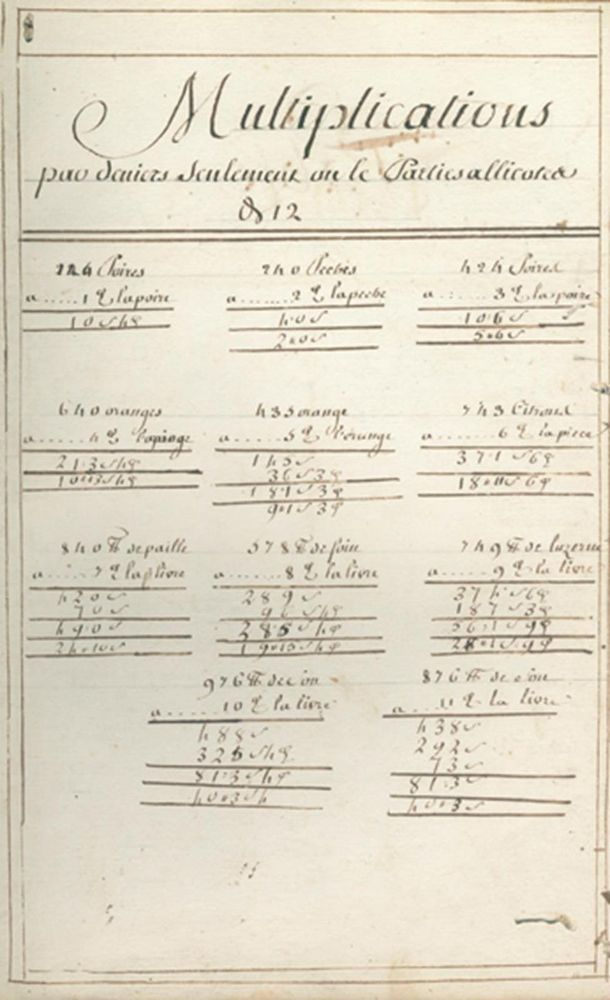 Multiplications
par deniers Seulement ou le Parties allicotes
De 12
124 Poires
a......1 ₰ la poire
10 s 4 ₰
240 Peches
a.......2 ₰ la peche
40 s
2 " 0 s
424 Poires
a.......3 ₰ la poire
106 s
5 " 6 s
640 oranges
a......4 ₰ l'orange
213 s 4 ₰
10 " 13 s 4 ₰
435 orange
a......5 ₰ l'orange
145 s
36 s 3 ₰
181 s 3 ₰
9 " 1 s 3 ₰
743 Citrons
a.......6 ₰ la piece
371 s 6 ₰
18 " 11 s 6 ₰
840 ₶ de paille
a.....7 ₰ la livre
420 s
70 s
490 s
24 " 10 s
578 ₶ de foin
a.......8 ₰ la livre
289 s
96 s 4 ₰
285 s 4 ₰
19 " 13 s 4 ₰
749 ₶ de luzerne
a.......9 ₰ la livre
374 s 6 ₰
187 s 3 ₰
561 s 9 ₰
28 " 1 s 9 ₰
976 ₶ de son
a......10 ₰ la livre
488 s
325 s 4 ₰
813 s 4 ₰
40 " 3 s 4
876 ₶ de son
a.....11 ₰ la livre
438 s
292 s
73 s
813 s
40 " 3 s